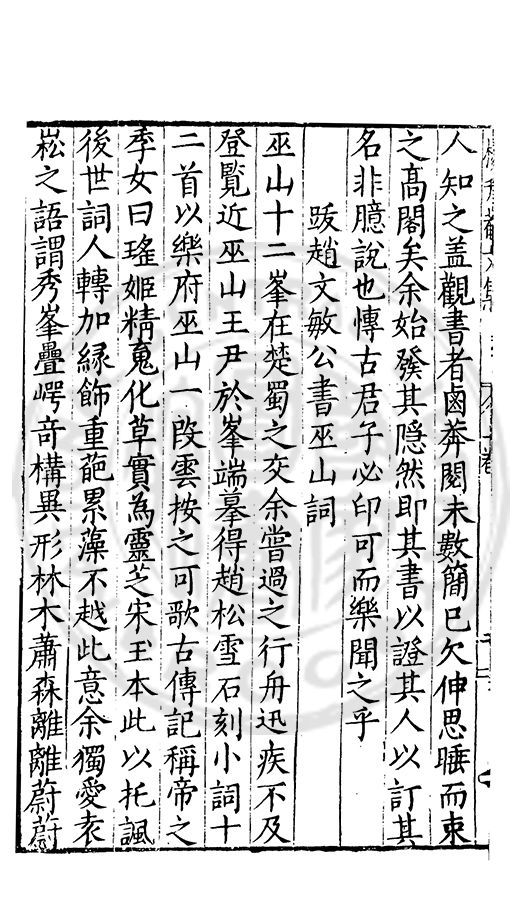 人知之蓋觀書者鹵莽閱未數簡已欠伸思睡而束
之高閣矣余始發其隱然即其書以證其人以訂其
名非臆說也慱古君子必印可而樂聞之乎
跋趙文敏公書巫山詞
巫山十二峯在楚蜀之交余嘗過之行舟迅疾不及
登覽近巫山王尹於峯端摹得趙松雪石刻小詞十
二首以樂府巫山一段雲按之可歌古傳記稱帝之
季女曰瑤姬精䰟化草實為靈芝宋玉本此以托諷
後世詞人轉加緣飾重葩累藻不越此意余獨愛袁
崧之語謂秀峯疊崿奇構異形林木蕭森離離蔚蔚